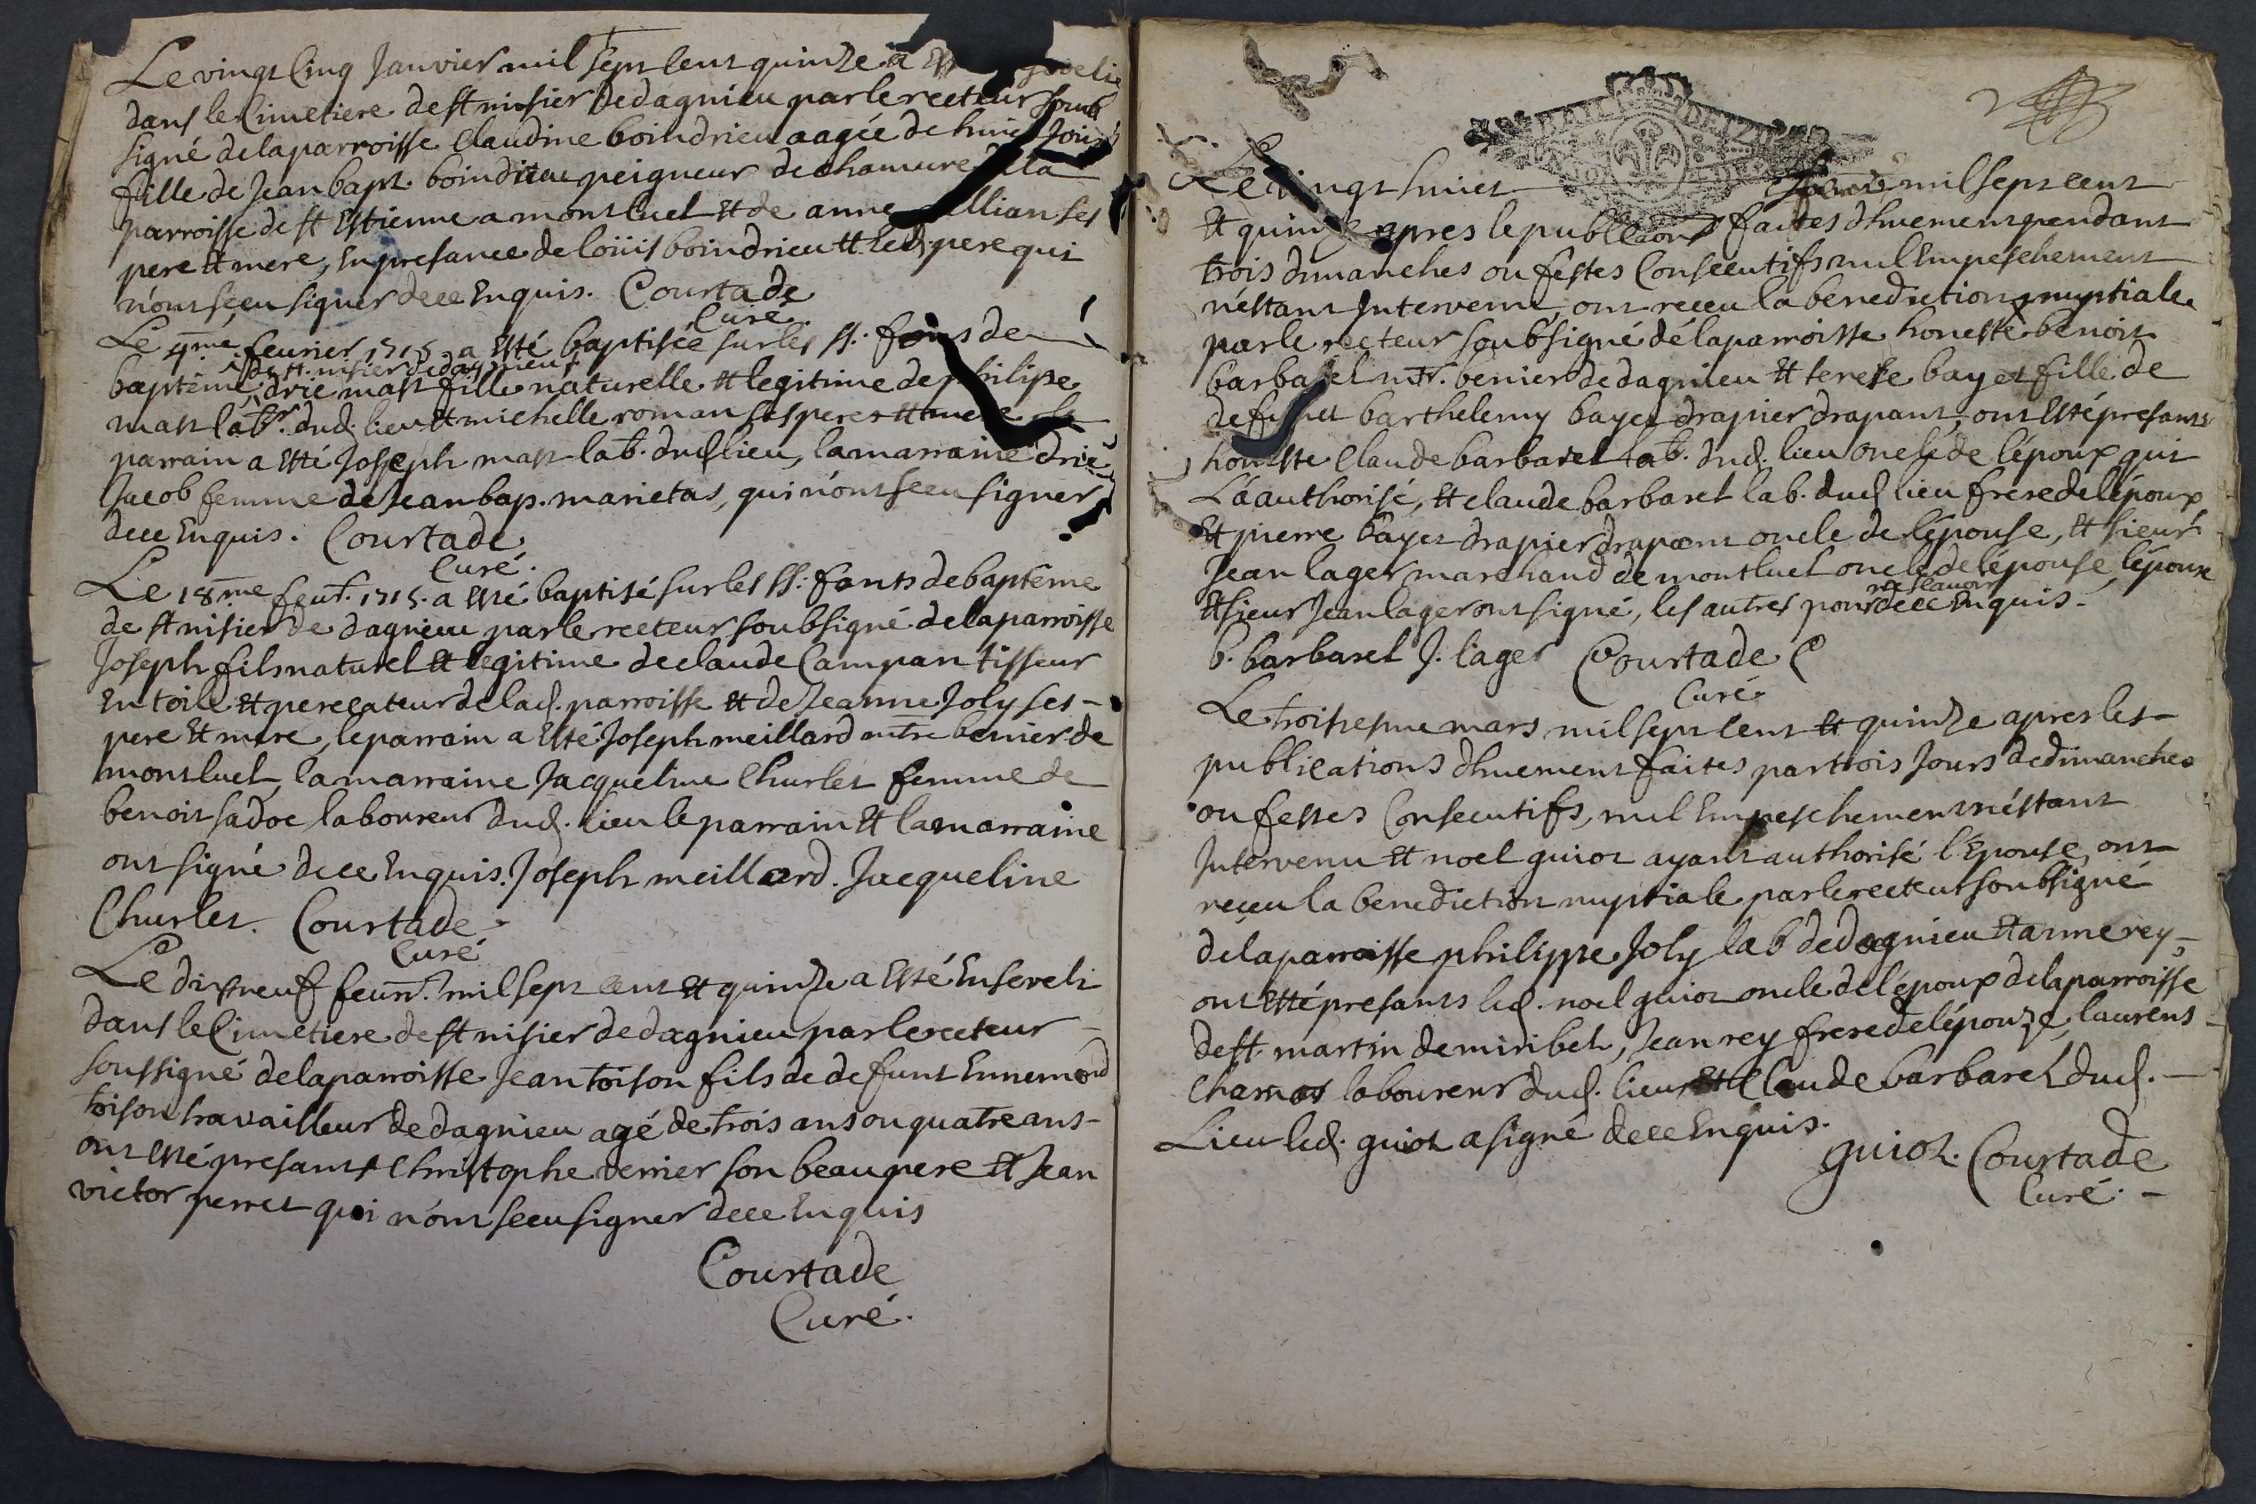 Le vingt Cinq Janvier mil sept Cent quinze a
dans le Cimetiere de st nisier de dagnieu par le recteur soub
signé de la parroisse Claudine boindrieu aagée de huict Jours
fille de Jean bapt. boindrieu peigneur de chamure de la
parroisse de st Estienne a montluel et de anne ses
pere et mere, En presance de loüis boindrieu et led. pere qui
n'ont sçeu signer de ce Enquis. Courtade
Curé
Le 4me. feurier 1715. a esté baptisée sur les ss. fons de
de st. nisier de dagnieu
baptême drie mast fille naturelle et legitime de philipe
mast labr. dud. lieu et michelle roman ses pere et mere
parrain a esté Joseph mast lab. dud lieu, la marraine drie
Jacob femme de Jean bap. marietas, qui n'ont sceu signer
de ce Enquis. Courtade
Curé.
Le 18me feur. 1715. a esté baptisé sur les ss: fonts de baptême
de st nisier de dagnieu par le recteur soubsigné de la parroisse
Joseph fils naturel et legitime de claude Campan tisseur
En toile et percepteur de lad. parroisse et de Jeanne Joly ses
pere et mere, le parrain a esté Joseph meillard mtre benier de
montluel, la marraine Jacqueline Churlet femme de
benoit sadoc laboureur dud. lieu le parrain et la marraine
ont signé de ce Enquis. Joseph meillard. Jacqueline
Churlet. Courtade
Curé
Le dixneuf feur. mil sept cent et quinze a esté Enseveli
dans le Cimetiere de st nisier de dagnieu par le recteur
soussigné de la parroisse Jean toison fils de defunt Ennemond
toison travailleur de dagnieu agé de trois ans ou quatre ans
ont esté presants Christophe verrier son beau pere et Jean
victor perret qui n'ont sceu signer de ce Enquis
Courtade
Curé.
Le vingt huict mil sept cent
et quinze apres le publicaons faites dhuement pendant
trois dimanches ou festes Consecutifs nul Empeschement
n'estant Intervenu, ont receu la benediction nuptiale
par le recteur soubsigné de la parroisse honeste benoit
barbaret mtr. benier de dagnieu et terese bayet fille de
defunct barthelemy bayet drapier drapant, ont esté presants
honeste Claude barbaret lab. dud. lieu oncle de l'époux qui
L'a authorisé, et claude barbaret lab. dud lieu frere de l'époux
et pierre bayet drapier drapant oncle de l'épouse, et sieur
Jean lager marchand de montluel oncle de l'épouse, l'époux
ne scavoir
et sieur Jean lager ont signé, les autres pour de ce Enquis.
b. barbaret J. lager Courtade
Curé
Le troisiesme mars mil sept cent et quinze apres les
publications dhuement faites par trois Jours de dimanches
ou festes Consecutifs, nul Empeschement n'éstant
Intervenu et noel guiot ayant authorisé l'Epouse, ont
reçeu la benediction nuptiale par le recteur soubsigné
de la parroisse philippe Joly lab de dagnieu et anne rey,
ont esté presants led. noel guiot oncle de l'époux de la parroisse
de st. martin de miribel, Jean rey frere de l'épouze, laurens
Charnas laboureur dud. lieu et Claude barbaret dud.
Lieu led. guiot a signé de ce Enquis.
guiot. Courtade
Curé.